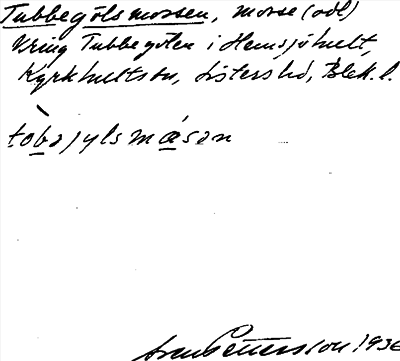 Tubbegölsmossen, mosse (odl)
Kring Tubbegölen i Hemsjöhult,
Kyrkhults sn, Listers hd, Blek. l.
tòbajylsmásan
Sven Pettersson 1936